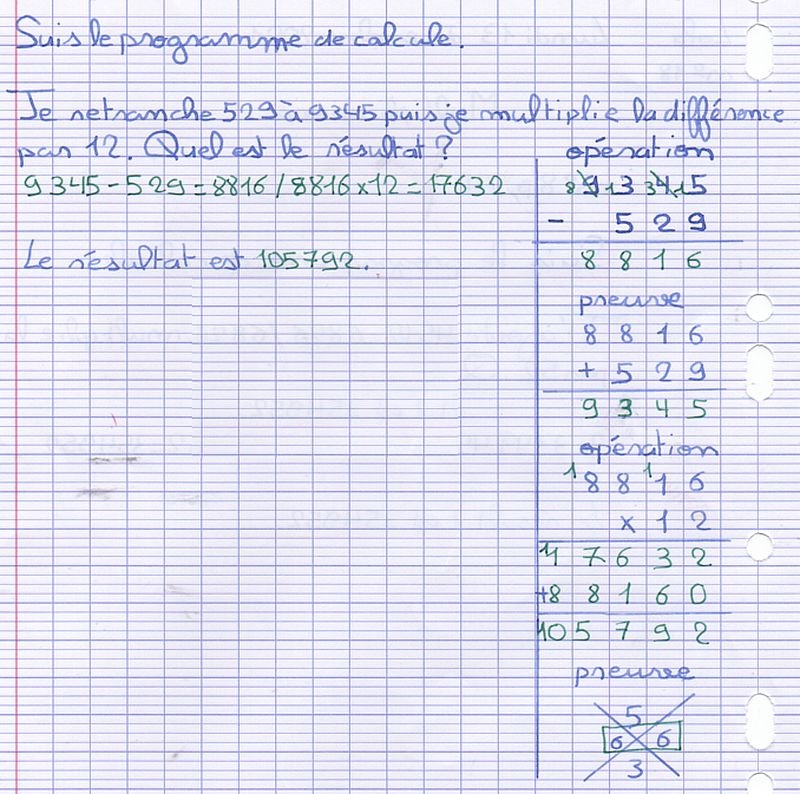 Suis le programme de calcule.
Je retranche 529 à 9345 puis je multiplie la différence
par 12. Quel est le résultat ?
9345 - 529 = 8816 / 8816 x 12 = 17632
Le résultat est 105792.
opération
8 9 13 3 4 15
- 5 2 9
8 8 1 6
preuve
8 8 1 6
+ 5 2 9
9 3 4 5
opération
1 8 8 1 1 6
x 1 2
1 7 6 3 2
+8 8 1 6 0
10 5 7 9 2
preuve
5
6 6
3